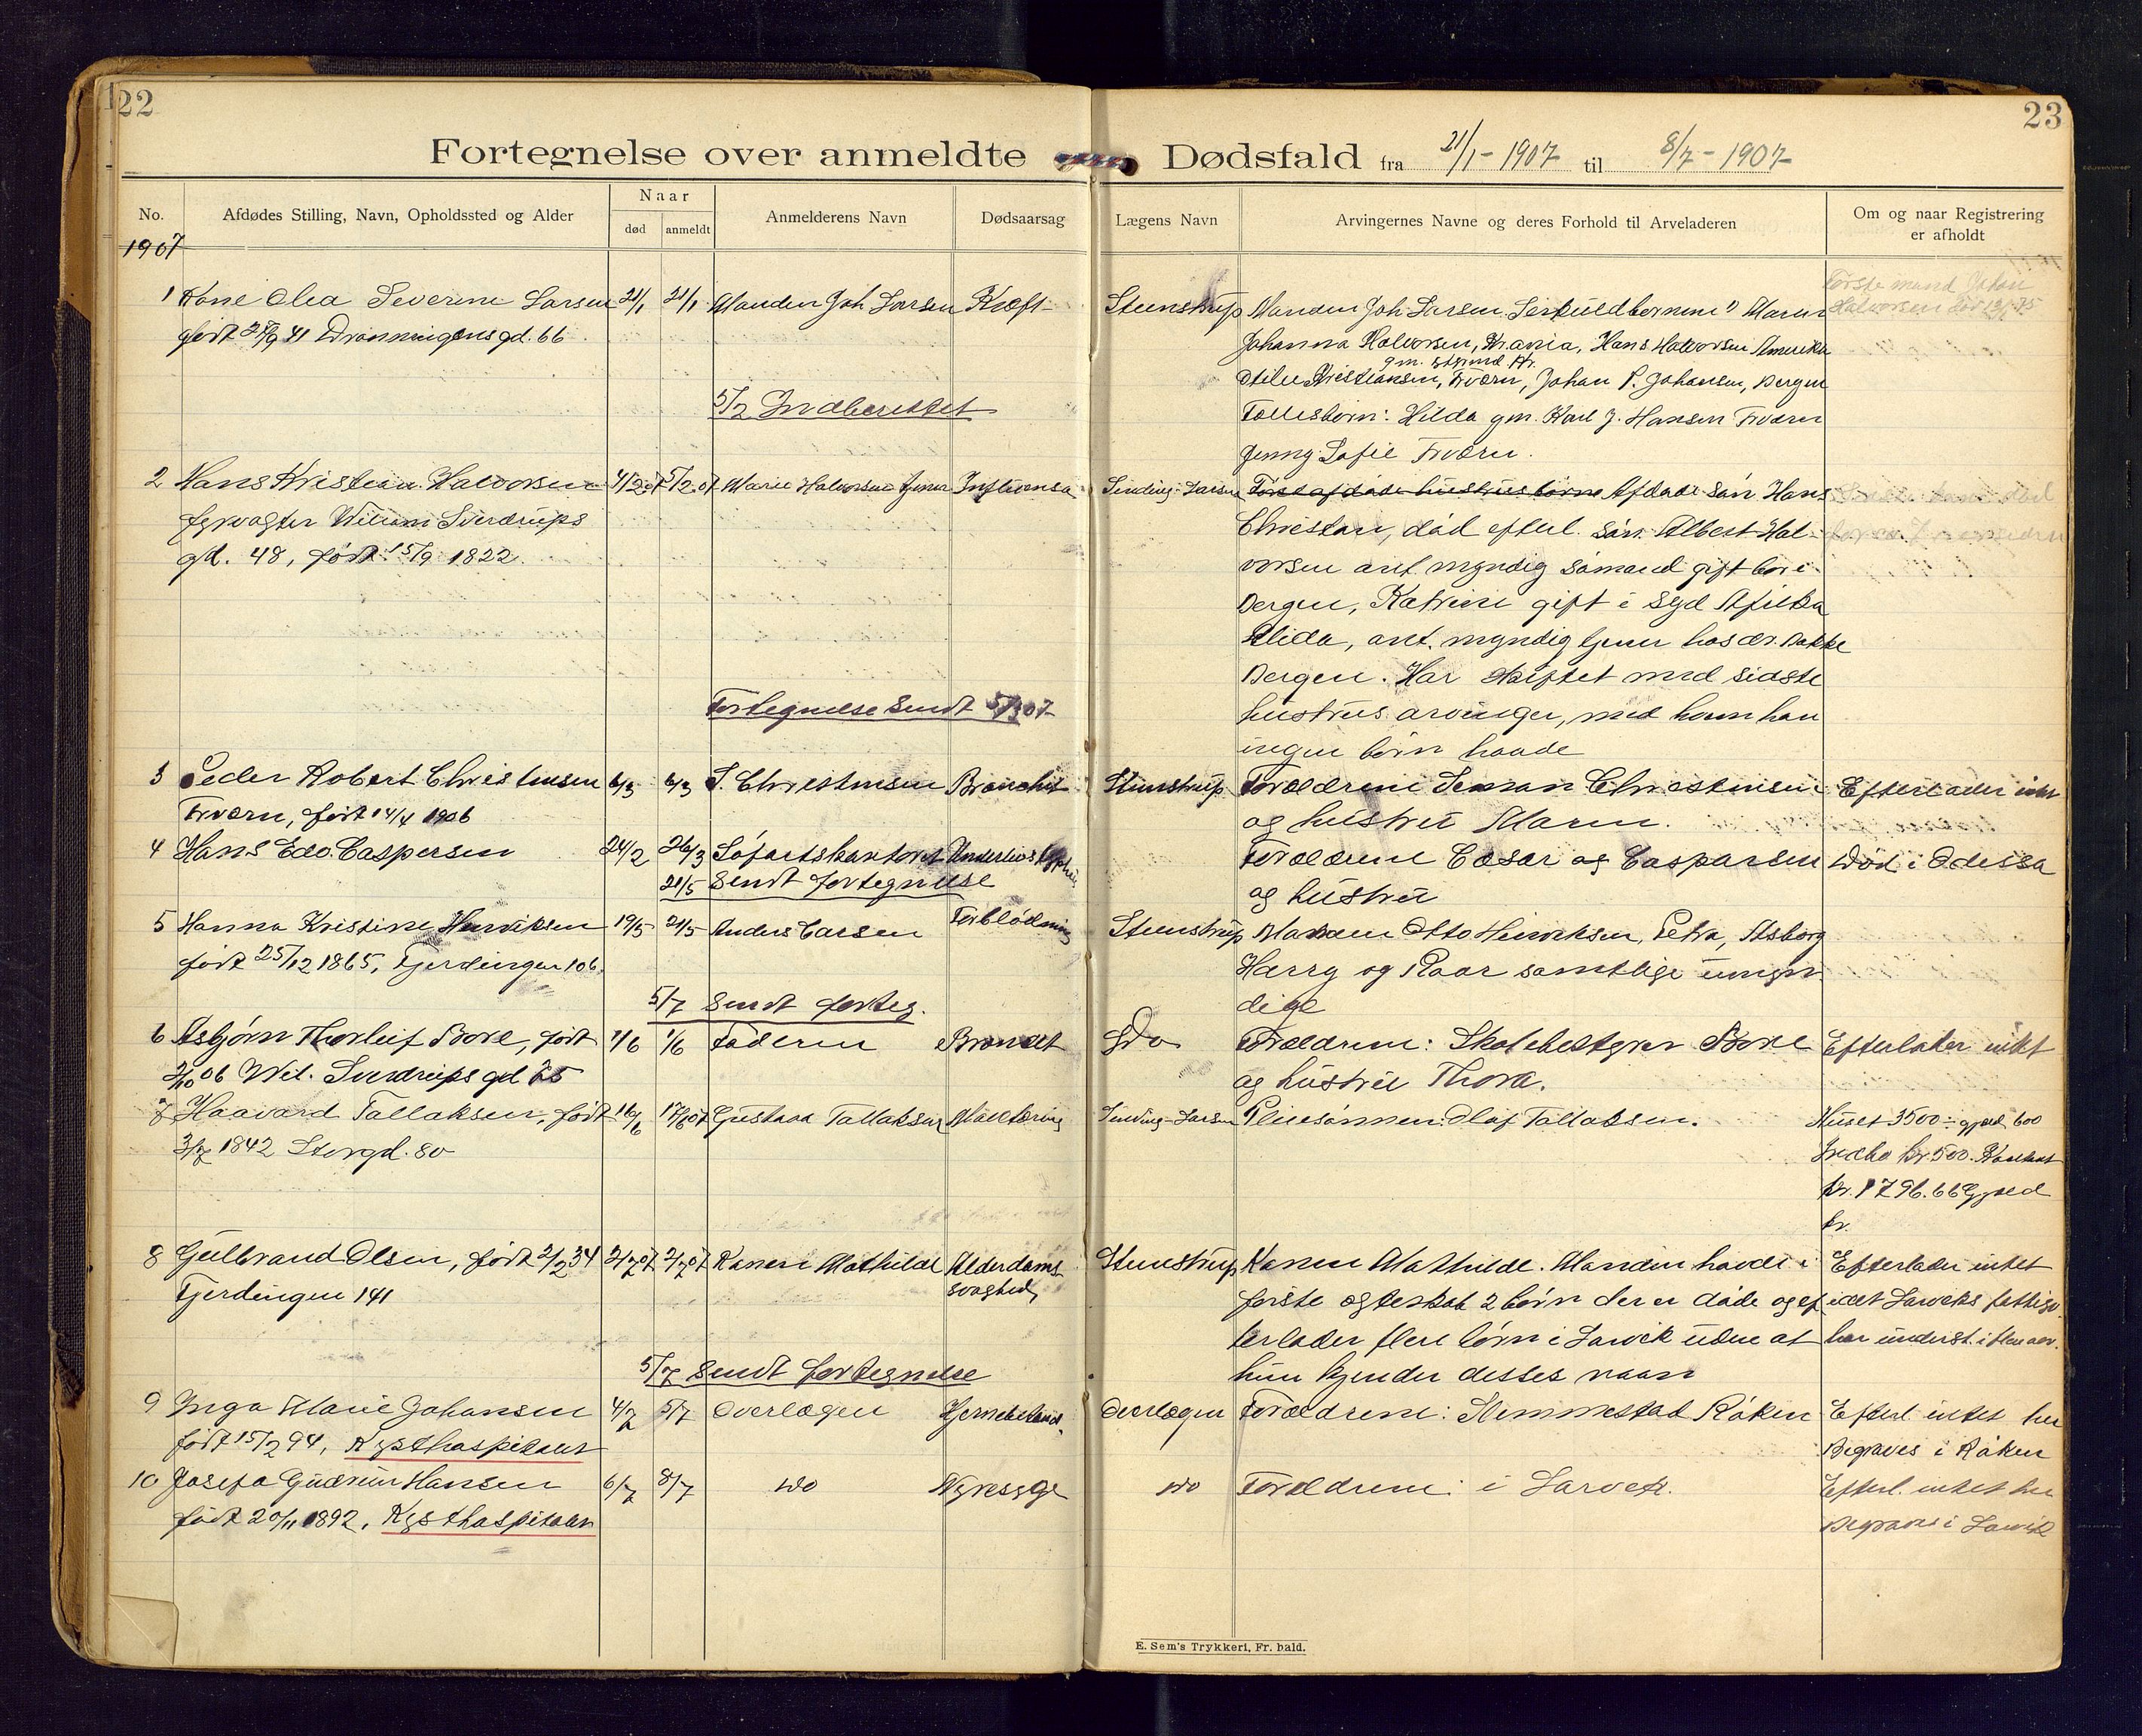 22
23
Fortegnelse over anmeldte Dødsfald fra 21/1 - 1907 til 8/7 - 1907
No. Afdødes Stilling, Navn, Opholdssted og Alder Naar død anmeldt Anmelderens Navn Dødsaarsag Lægens Navn Arvingernes Navne og deres Forhold til Arveladeren Om og naar Registrering er afholdt
1907
1 Kone Olea Severine Larsen 21/1 21/1 Manden Joh Larsen Kræft Steenstrup Manden Joh Larsen. Særkuldbørnene 1) Maren Første mand Johan
født 27/9 41 Dronningensgd. 66 Johanna Halvorsen, Maria, Hans Halvorsen Amerika Halvorsen død
gm. styrmd Kr.
Kristiansen, Fværn, Johan P. Johansen, Bergen
5/2 Indberettet Fællesbørn: Hilda gm. Karl J. Hansen Fværn
Jenny Sofie Fværn.
2 Hans Kristian Halvorsen 4/2 07 5/2 07 Marie Halvorsen tjener Influensa Sinding-Larsen Først afdøde hustrus børn Afdøde søn Hans
fyrvogter Wilum Sverdrups Christian, død efterl. søn Albert Hal-
gd. 48, født 15/9 1822. vorsen ant. myndig sømand gift bor i
Bergen, Katrine gift i Syd Afrika
Alida, ant. myndig tjener hos dr. Bakke
Bergen. Har skiftet med sidste
Fortegnelse sendt 5/3 07 hustrus arvinger, med hvem han
ingen børn havde
3 Peder Robert Christensen 6/3 6/3 S. Christensen Bronchit Steenstrup Forældrene Seman Christensen Efterlader intet
Fværn, født 14/4 1906 og hustru Maren.
4 Hans Edv. Caspersen 24/2 26/3 Søfartskontoret Underlivs Typhus Forældrene Cæsar og Casparsen Død i Odessa
21/5 Sendt fortegnelse og hustru
5 Hanna Kristine Henriksen 19/5 21/5 Anders Larsen Forblødning Steenstrup Manden Otto Henriksen, Petra, Asborg
født 25/12 1865, Tjerdingen 106. Harry og Roar samtlige umyn
5/7 Sendt forteg. dige
6 Asbjørn Thorleif Bore, født 1/6 1/6 Faderen Brandt Do Forældrene: Skolebestyrer Bore Efterlader intet
2/10 06 Wil. Sverdrups gd 25 og hustru Thora.
7 Haavard Tallaksen, født 16/6 17/6 07 Gustava Tallaksen Mavetæring Sinding-Larsen Pleiesønnen Olaf Tallaksen. Huset 3500 ÷ gjæld 600
3/7 1842 Storgd. 80 Indbo kr. 500. Kontant
kr. 1796.66 Gjæld
kr.
8 Gulbrand Olsen, født 2/2 34 2/7 07 2/7 07 Konen Mathilde Alderdoms Steenstrup Konen Mathilde. Manden havde i Efterlader intet
Tjerdingen 141 svaghed, første ægteskab 2 børn der er døde og ef idet Larviks fattigv.
terlader flere børn i Larvik uden at har underst. i flere aar.
5/7 Sendt fortegnelse hun kjender disses navn
9 Inga Marie Johansen 4/7 5/7 Overlægen Hjernebetænd. Overlægen Forældrene: Slemmestad Røken Efterl. intet her
født 15/2 94, Kysthospitalet Begraves i Røken
10 Josefa Gudrun Hansen 6/7 8/7 Do Nyresyge Do Forældrene: i Larvik. Efterl. intet her
født 20/11 1892, Kysthospitalet Begraves i Larvik
E. Sem's Trykkeri, Fr. hald.